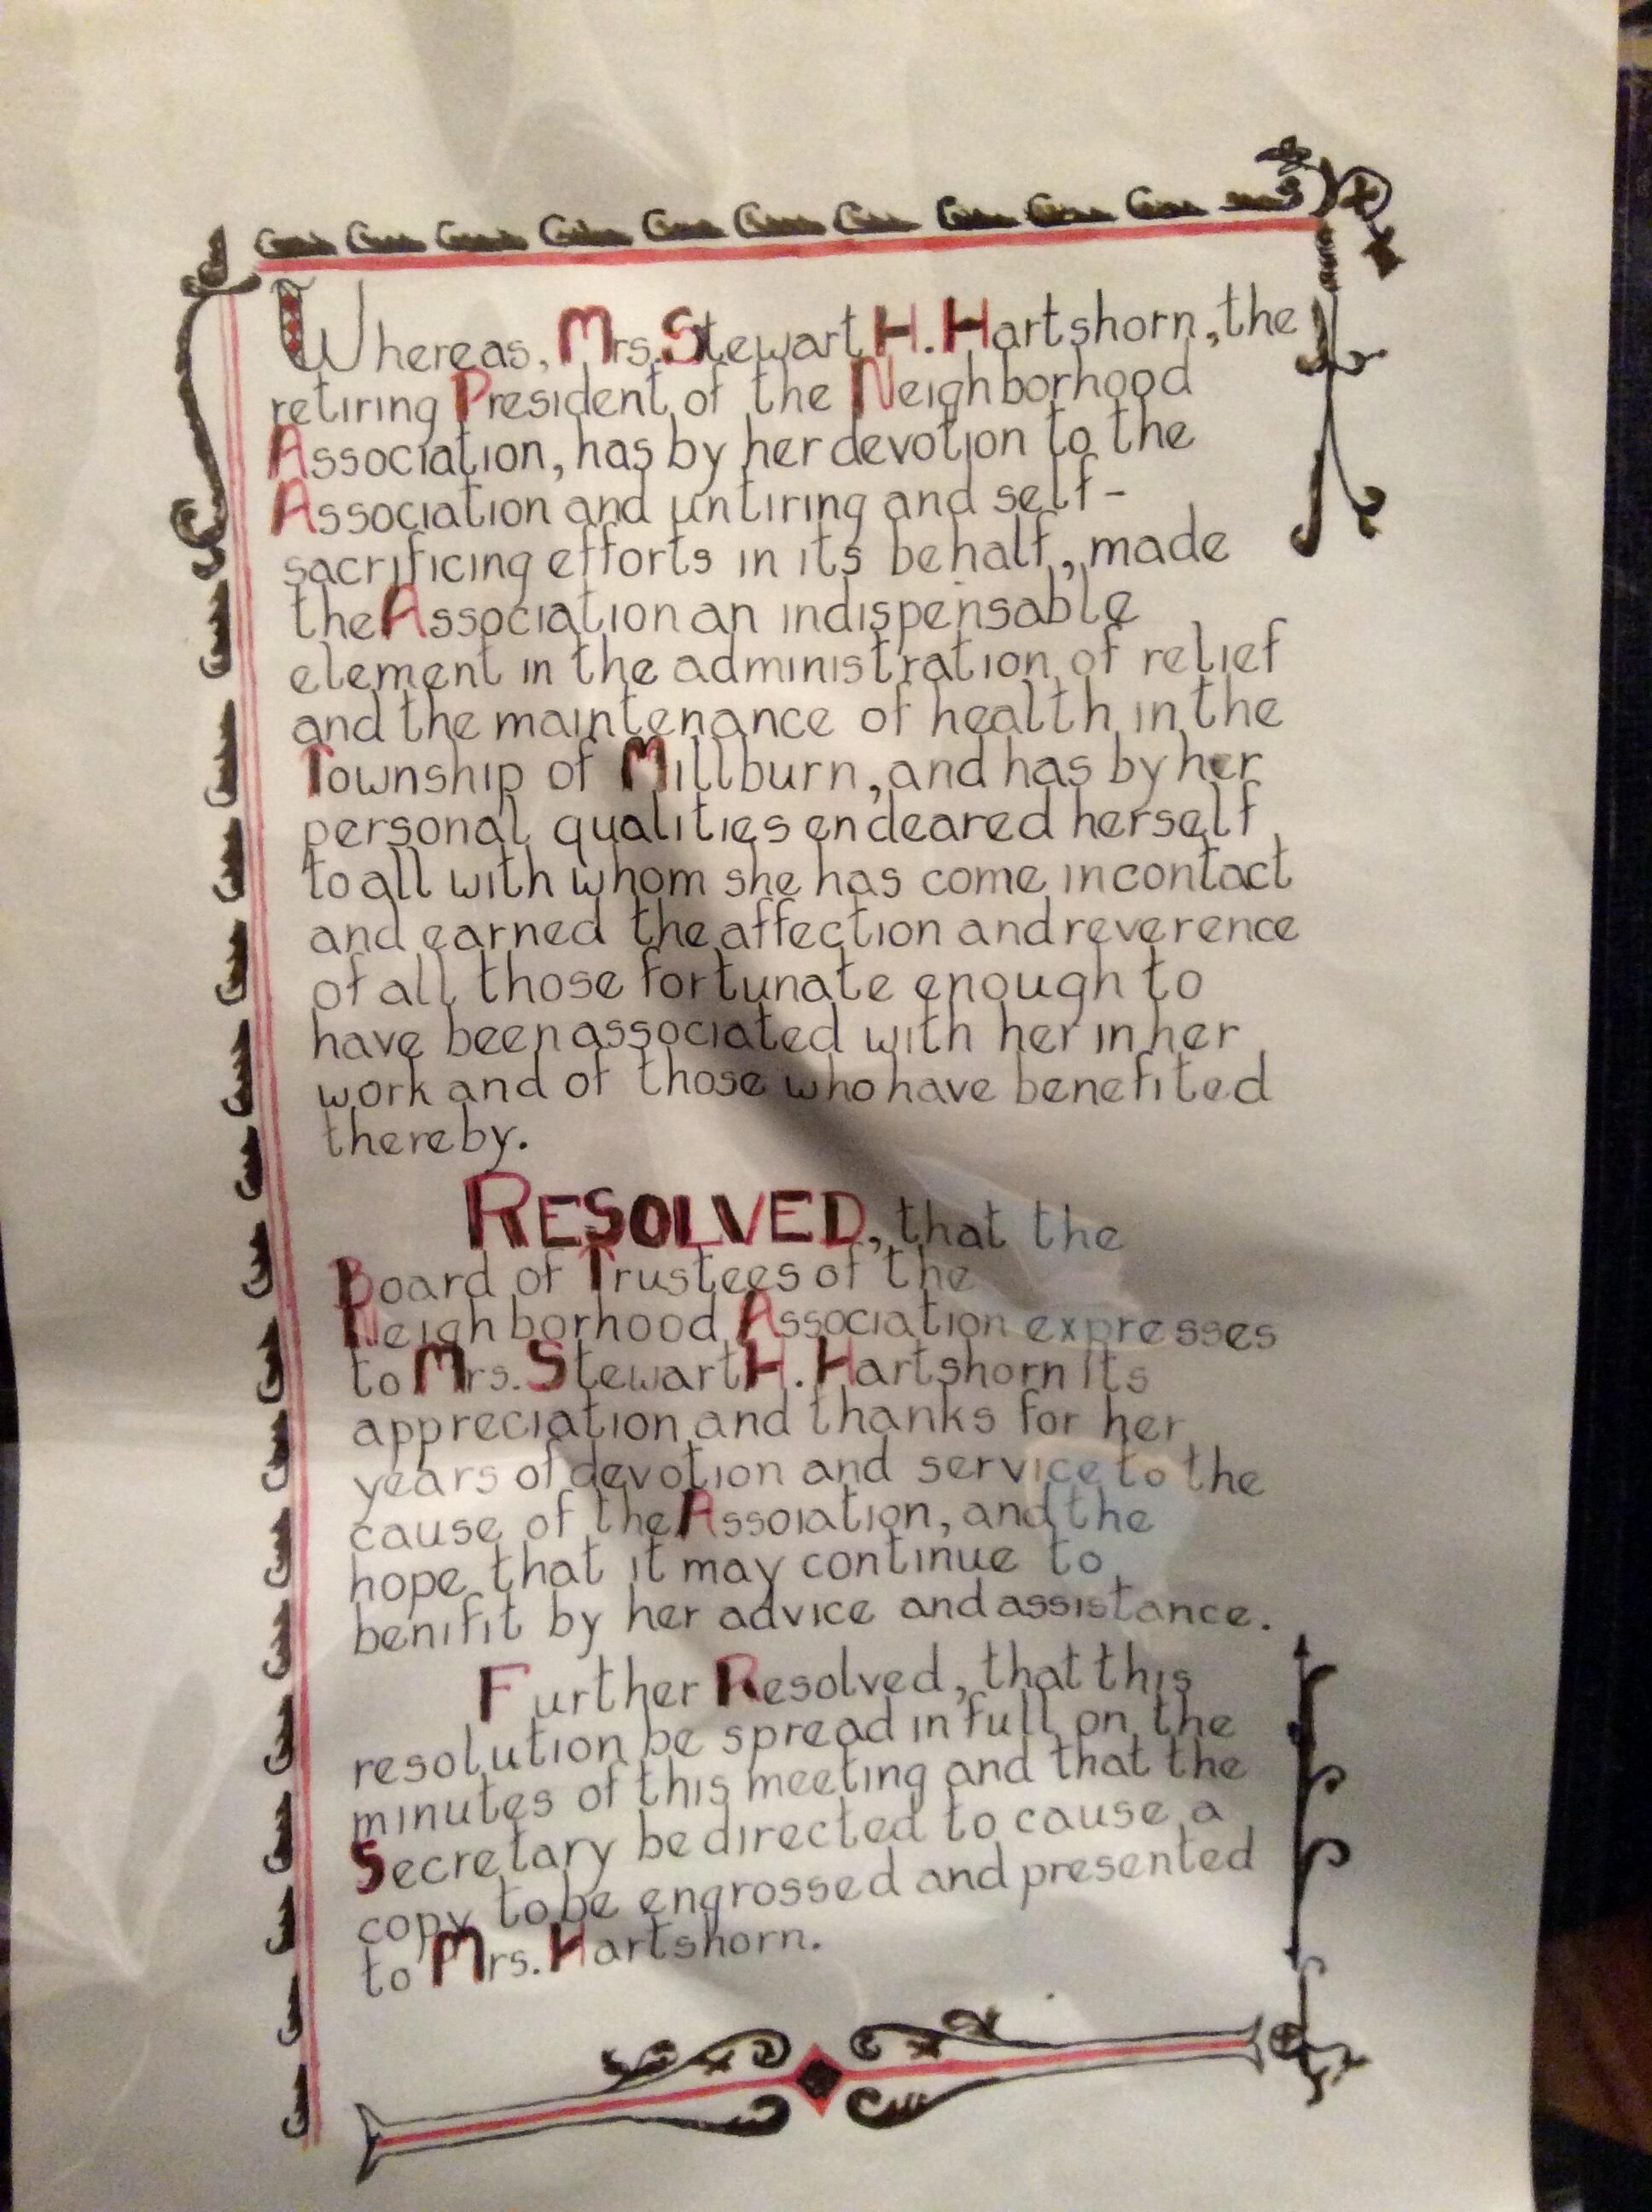 Whereas, Mrs. Stewart H. Hartshorn, the
retiring President of the Neighborhood
Association, has by her devotion to the
Association and untiring and self-
sacrificing efforts in its behalf, made
the Association an indispensable
element in the administration of relief
and the maintenance of health in the
Township of Millburn, and has by her
personal qualities endeared herself
to all with whom she has come in contact
and earned the affection and reverence
of all those fortunate enough to
have been associated with her in her
work and of those who have benefited
thereby.
RESOLVED, that the
Board of Trustees of the
Neighborhood Association expresses
to Mrs. Stewart H. Hartshorn its
appreciation and thanks for her
years of devotion and service to the
cause of the Assoiation, and the
hope that it may continue to
benifit by her advice and assistance.
Further Resolved, that this
resolution be spread in full on the
minutes of this meeting and that the
Secretary be directed to cause a
copy to be engrossed and presented
to Mrs. Hartshorn.